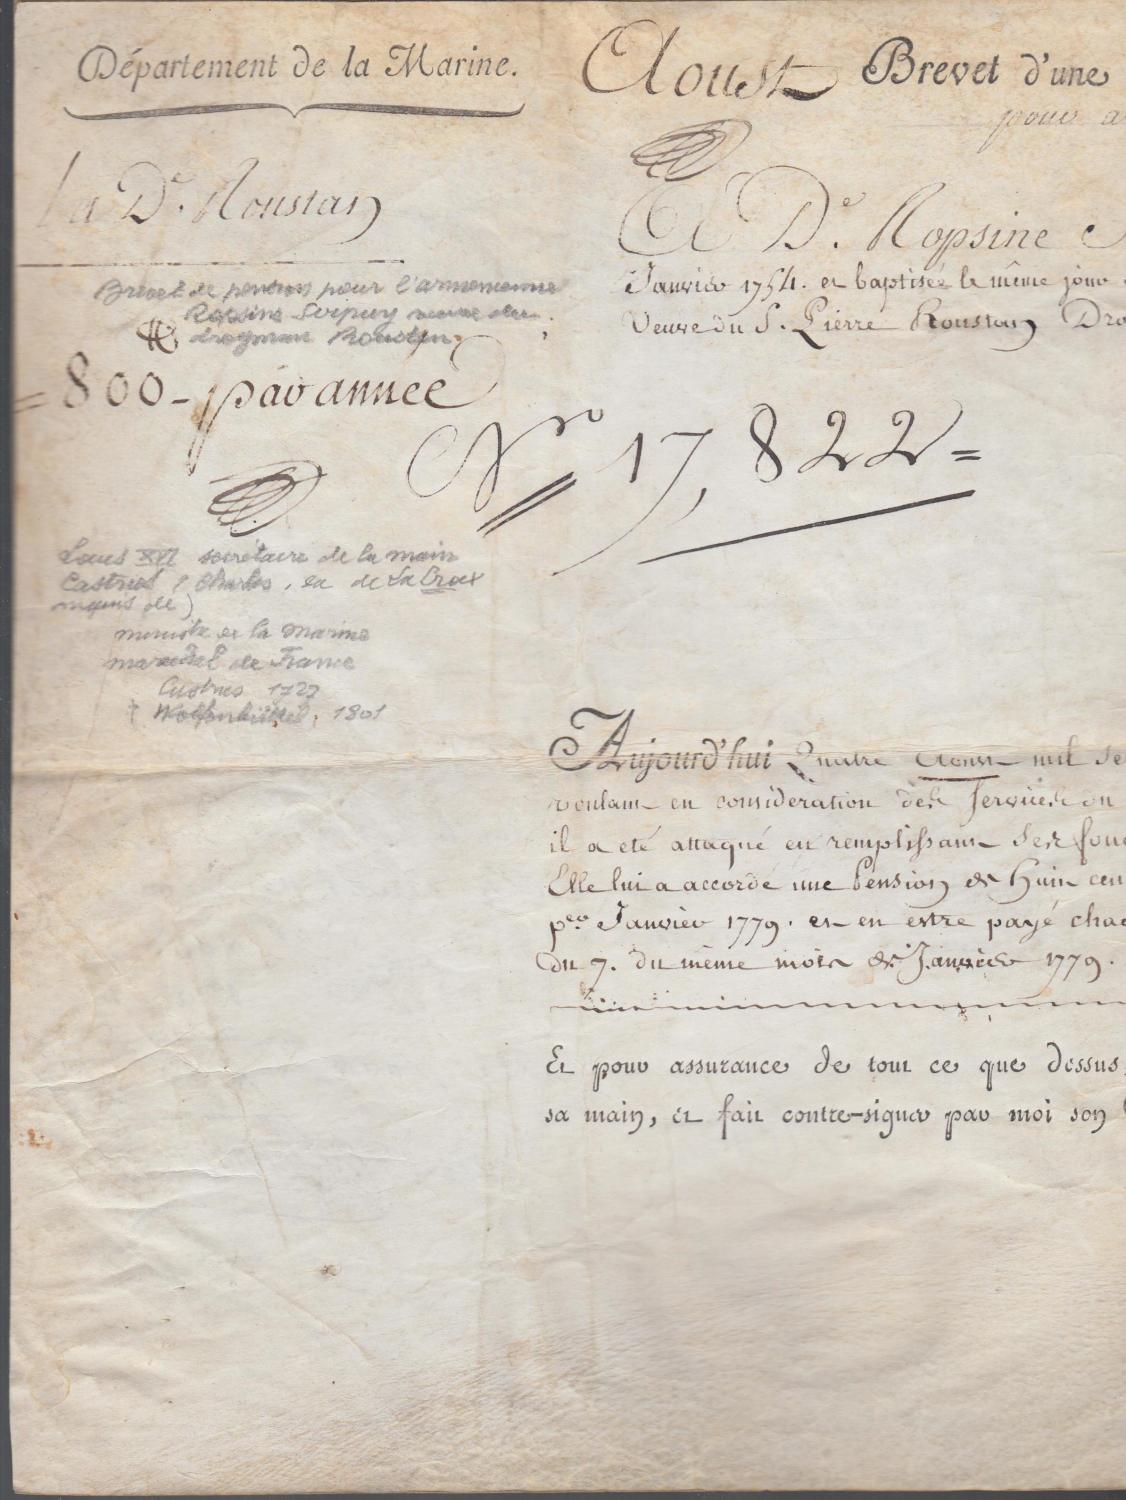 Département de la Marine.
Aoust Brevet d'une
pour a
La De. Roustan
A De. Ropsine
Brevet de pension pour l'armenienne
Ropsine Serpuy veuve du
drogman Roustan
Janvier 1754. et baptisée le même jour
Veuve du S. Pierre Roustan Dro
= 800 - par année
No 17,822 =
Louis XVI secrétaire de la main
Castries (Charles, eu de La Croix
marquis de)
ministre de la Marine
maréchal de France
Castries 1727
† Wolfenbüttel, 1801
Aujourd'hui Quatre Aoust mil se
voulant en considération des Services du
il a été attaqué en remplissant ses fonc
Elle lui a accordé une Pension de Huit cen
per Janvier 1779. et en estre payé chac
du 7. du même mois de Janvier 1779.
Et pour assurance de tout ce que dessus,
sa main, et fait contre-signer par moi son